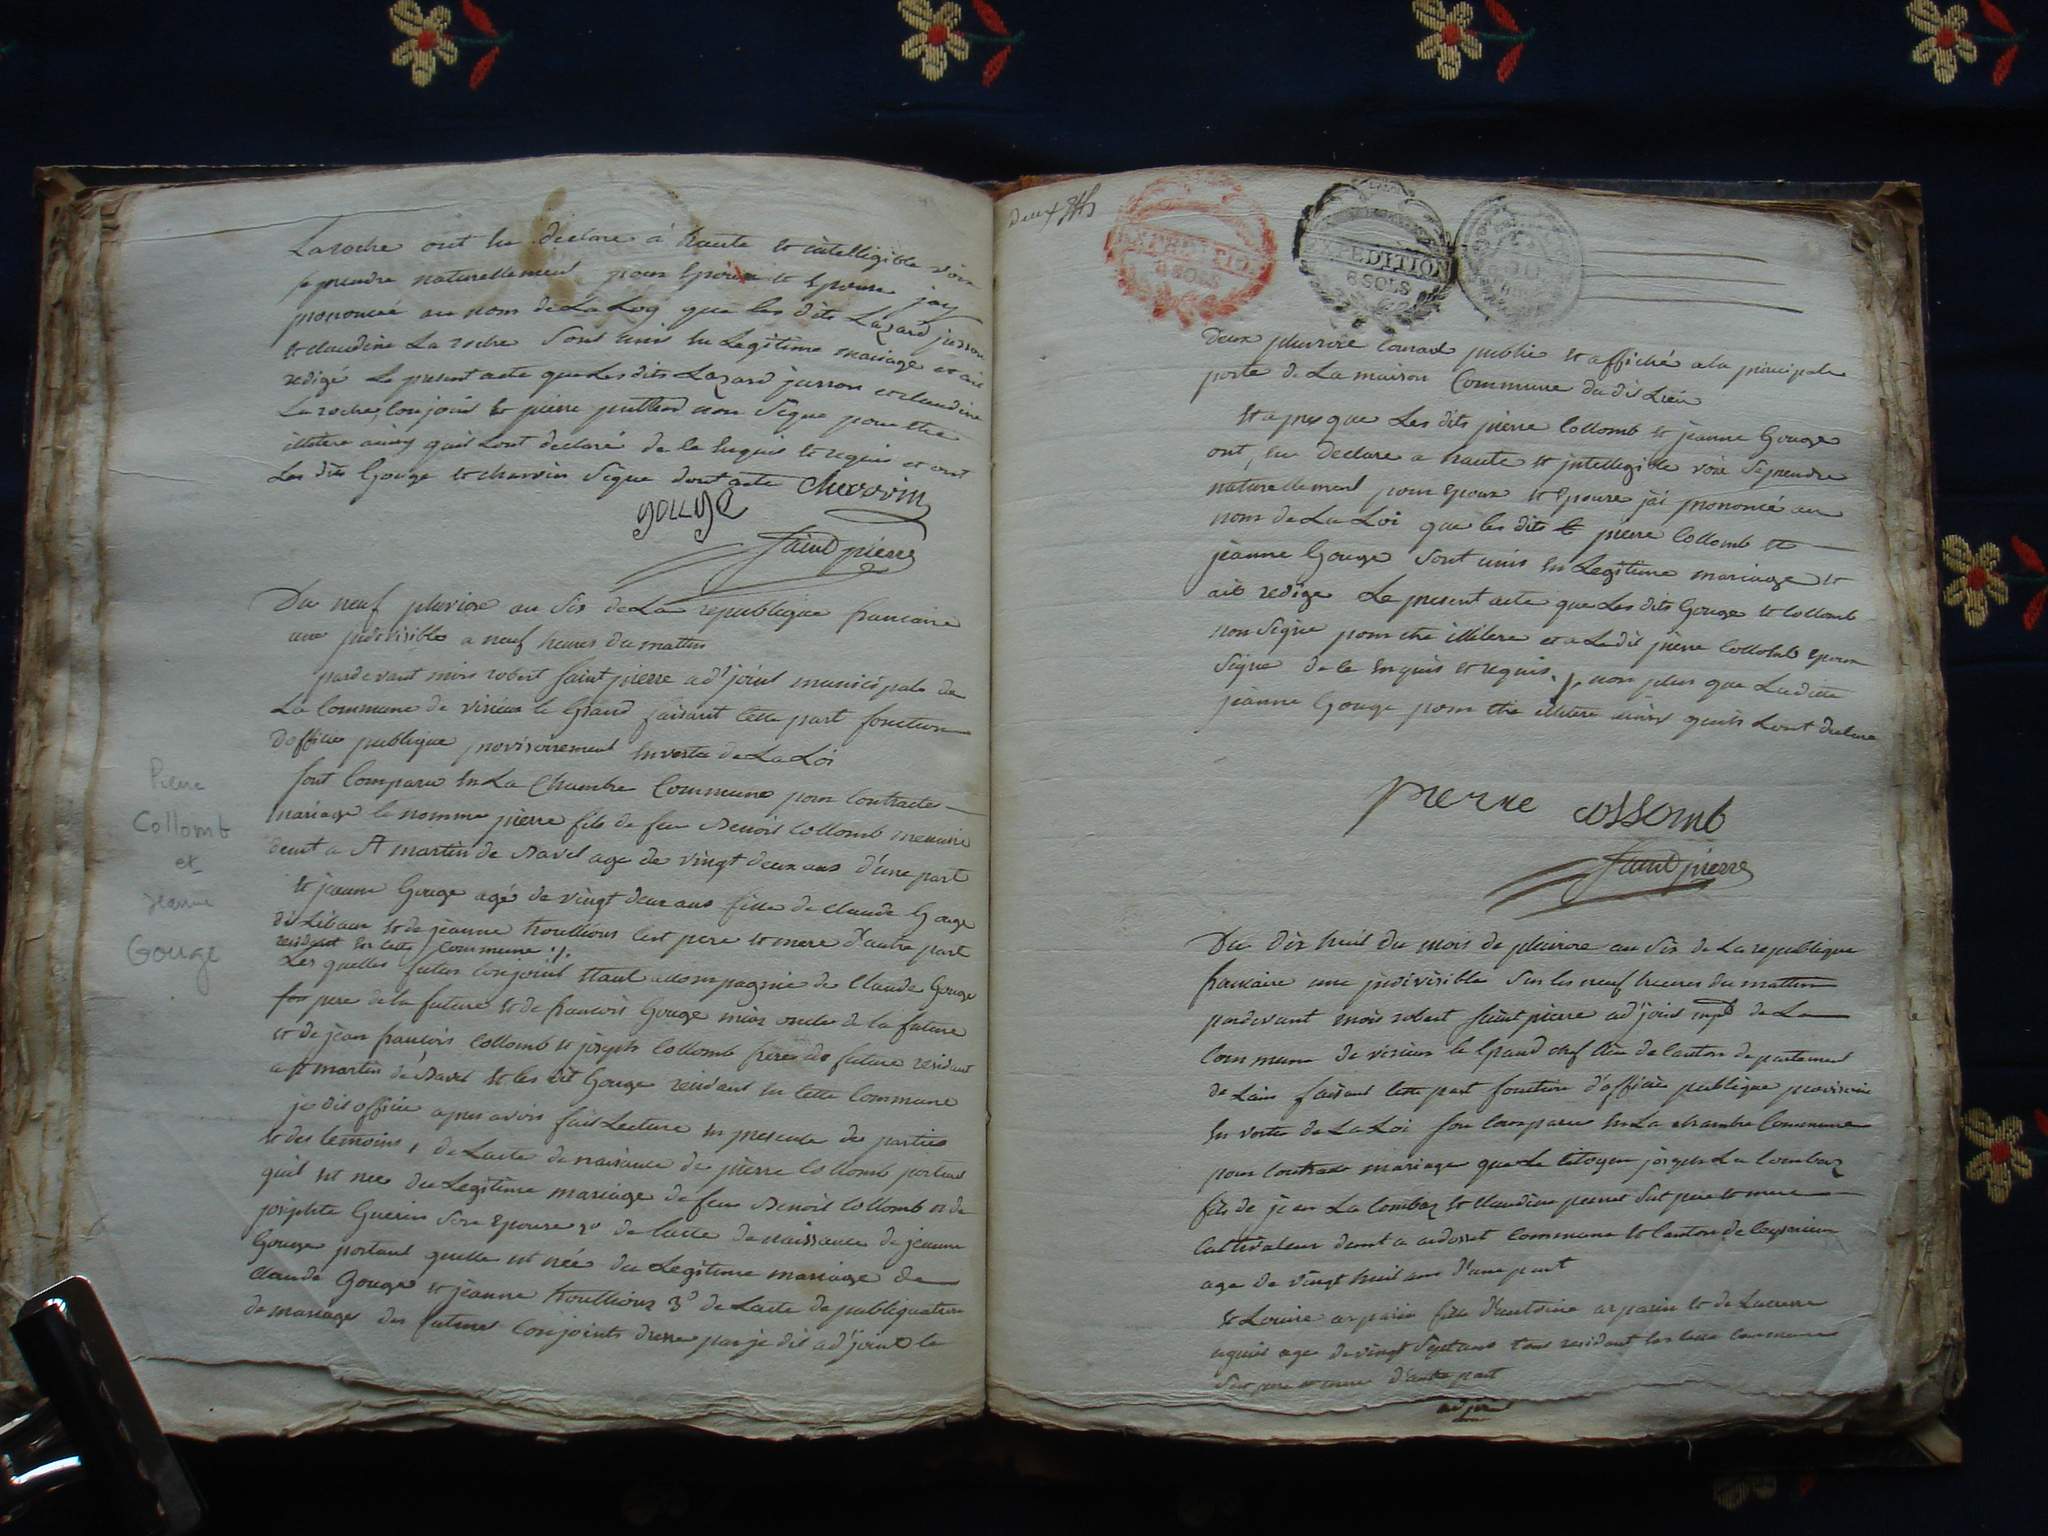 Laroche ont eu declare á haute et intelligible voix
se prendre naturellement pour Epoux et Epouse jay
prononcée au nom de La Loy que les dits Lazard jusson
et claudine La roche Sont unis en Legitime mariage et ait
redigé Le present acte que Les dits Lazard jusson et claudine
La roche Conjoint et pierre non Signe pour etre
illitere ainsy quil Lont declaré de le Enquis et requis et ont
Les dits Gouge et charvin Signe dont acte Chervvin
gouge
Saint pierre
Du neuf pluviose an Six de La republique francaise
une jndivisible a neuf heures du mattin
pardevant mois robert Saint pierre ad'joint municipale de
La Commune de virieu le Grand faisant cette part fonction
d'officie publique provisoirement En vertu de La Loi
Sont Comparu En La Chambre Commune pour Contracter
mariage le nomme pierre fils de feu Benoit Collomb
demt a St martin de Bavel age de vingt deux ans d'une part
et jeanne Gouge agé de vingt deux ans fille de Claude Gouge
dit et de jeanne trouillioux Cest pere et mere d'autre part
residant En cette Commune ·/.
Les quelles futur Conjoint Etant accompagnie de Claude Gouge
pere de la future et de francois Gouge oncle de la future
et de jean francois Collomb et joseph Collomb freres du future residant
a St martin de Bavel et les dit Gouge residant En cette Commune
je dit officie apres avoir fait Lecture En presence des parties
et des temoins 1 de Lacte de naisance de pierre Collomb portant
quil Est nee du Legitime mariage de feu Benoit Collomb et de
josephte Guerin Son Epouse 2o de lacte de naissance de jeanne
Gouge portant quelle Est née du Legitime mariage de
claude Gouge et jeanne trouillioux 3o de Lacte de publiquation
de mariage des futures Conjoints dresse par je dit ad'joint le
Pierre
Collomb
et
Jeanne
Gouge
EXPEDITION
6 SOLS
EXPEDITION
6 SOLS
Deux pluviose Courant publie et affiché a la principale
porte de La maison Commune du dit Lieu
Et apres que Les dits pierre Collomb et jeanne Gouge
ont, eu Declare a haute et jntelligible voix Se prendre
naturellement pour Epoux et Epouse jai prononcé au
nom de La Loi que les dits pierre Collomb et
jeanne Gouge Sont unis En Legitime mariage et
ait redige Le present acte que Les dits Gouge et Collomb
non Signe pour etre illitere et a Le dit pierre Collomb Epoux
Signe de le Enquis et requis ./. non plus que Ladite
jeanne Gouge pour etre illitere ainsy quils Lont declare
pierre collomb
Saint pierre
Du dix huit du mois de pluviose an Six de La republique
francaise une jndivisible Sur les neuf heures du mattin
pardevant mois robert Saint pierre ad'joint mpl de La
Commune de virieu le Grand chef lieu de Canton departement
de Lain faisant cette part fonction d'officie publique provisoire
En vertu de La Loi Son Comparu En La chambre Commune
pour Contracte mariage que Le Citoyen joseph La Combaz
fils de jean La Combaz et Claudine pernet Sest pere et mere
Cultivateur demt a commune et Canton de Ceyzerieu
age de vingt huit ans d'une part
et Louise arparin fille d'antoine arparin et de
age de vingt Sept ans tous residant En cette Commune
Ses pere et mere d'autre part